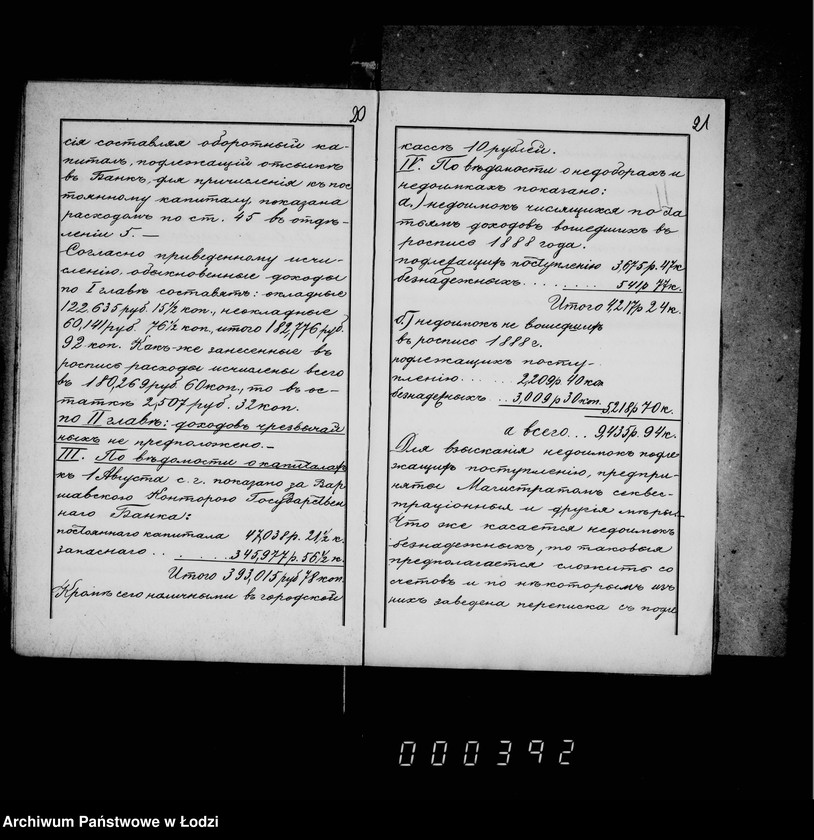 20
сія составляя оборотный ка-
питалъ, подлежащій отсылкѣ
въ Банкъ, для причисленія къ пос
тоянному капиталу, показана
расходомъ по ст. 45 въ отдѣ-
леніи 5. —
Согласно приведенному исчи-
сленію обыкновенные доходы
по I главѣ составятъ: окладные
122,635 руб. 15½ коп., неокладные
60,141 руб. 76½ коп., итого 182,776 руб.
92 коп. Какъ-же занесенные въ
роспись расходы исчислены всего
въ 180,269 руб 60 коп., то въ ос-
таткѣ 2,507 руб. 32 коп.
по II главѣ: доходовъ чрезвычай
ныхъ не предположено. —
III. По вѣдомости о капиталахъ
къ 1 Августа с. г. показано за Вар
шавскою Конторою Государствен
наго Банка:
постояннаго капитала 47,038 р. 21½ к.
запаснаго . . . . . . 345,977 р. 56½ к.
Итого 393,015 руб 78 коп.
Кромѣ сего наличными въ городской
21
кассѣ 10 рублей.
IV. По вѣдомости о недоборахъ и
недоимкахъ показано:
а.) недоимокъ числящихся по ста
тьямъ доходовъ вошедшихъ въ
роспись 1888 года.
подлежащихъ поступленію 3,675 р. 47 к
безнадежныхъ . . . . . . . 541 р 77 к.
Итого 4,217 р 24 к.
б.) недоимокъ не вошедшихъ
въ роспись 1888 г.
подлежащихъ посту-
пленію . . . . . . 2,209 р 40 коп
безнадежныхъ . . 3,009 р 30 коп.
5,218 р 70 к.
а всего . . . 9,435 р. 94 к.
Для взысканія недоимокъ подле
жащихъ поступленію, предпри-
няты Магистратомъ секвес-
траціонныя и другія мѣры. —
Что же касается недоимокъ
безнадежныхъ, то таковыя
предполагается сложить со
счетовъ и по нѣкоторымъ изъ
нихъ заведена переписка съ подле
000392
Archiwum Państwowe w Łodzi